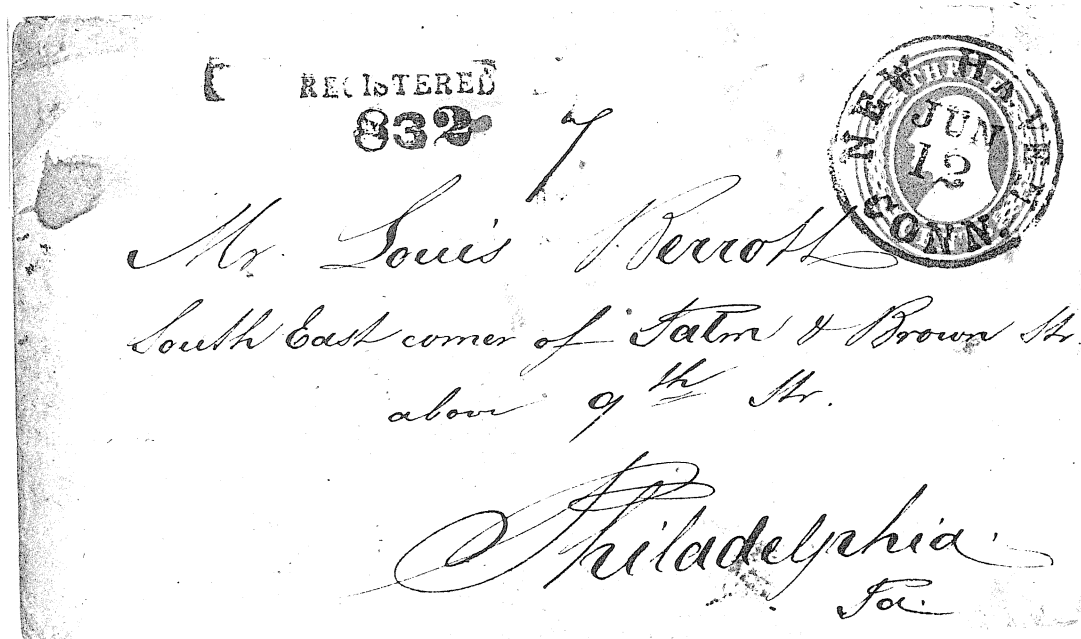 REGISTERED
832
7
NEW HAVEN
CONN.
JUN
12
THREE
Mr. Louis Berrott
South East corner of Palm & Brown Str.
above 9th Str.
Philadelphia
Pa.